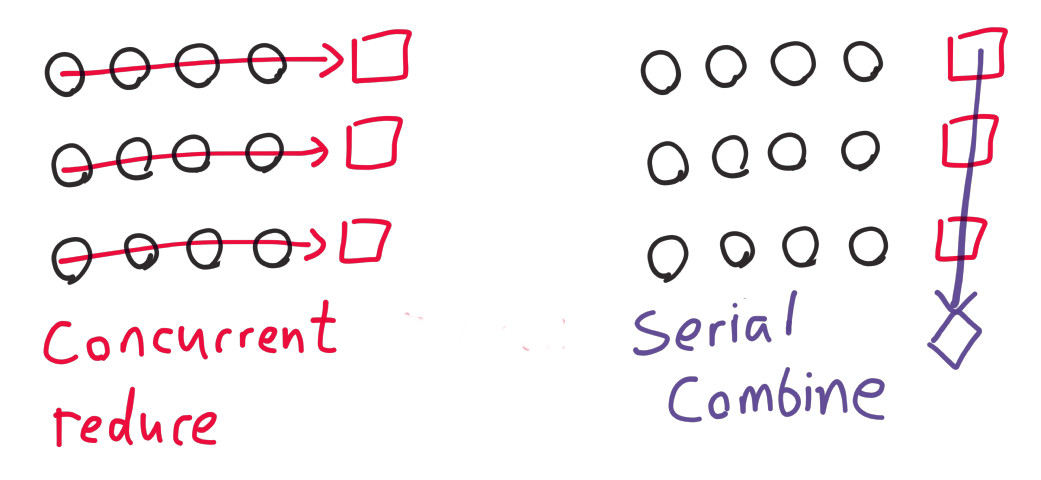 Concurrent
reduce
Serial
Combine